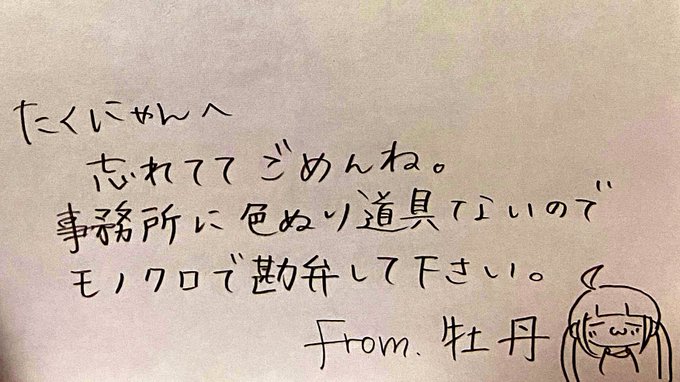 たくにゃんへ
忘れてて ごめんね。
事務所に色ぬり道具てないので
モノクロで勘弁して下さい。
From. 牡丹